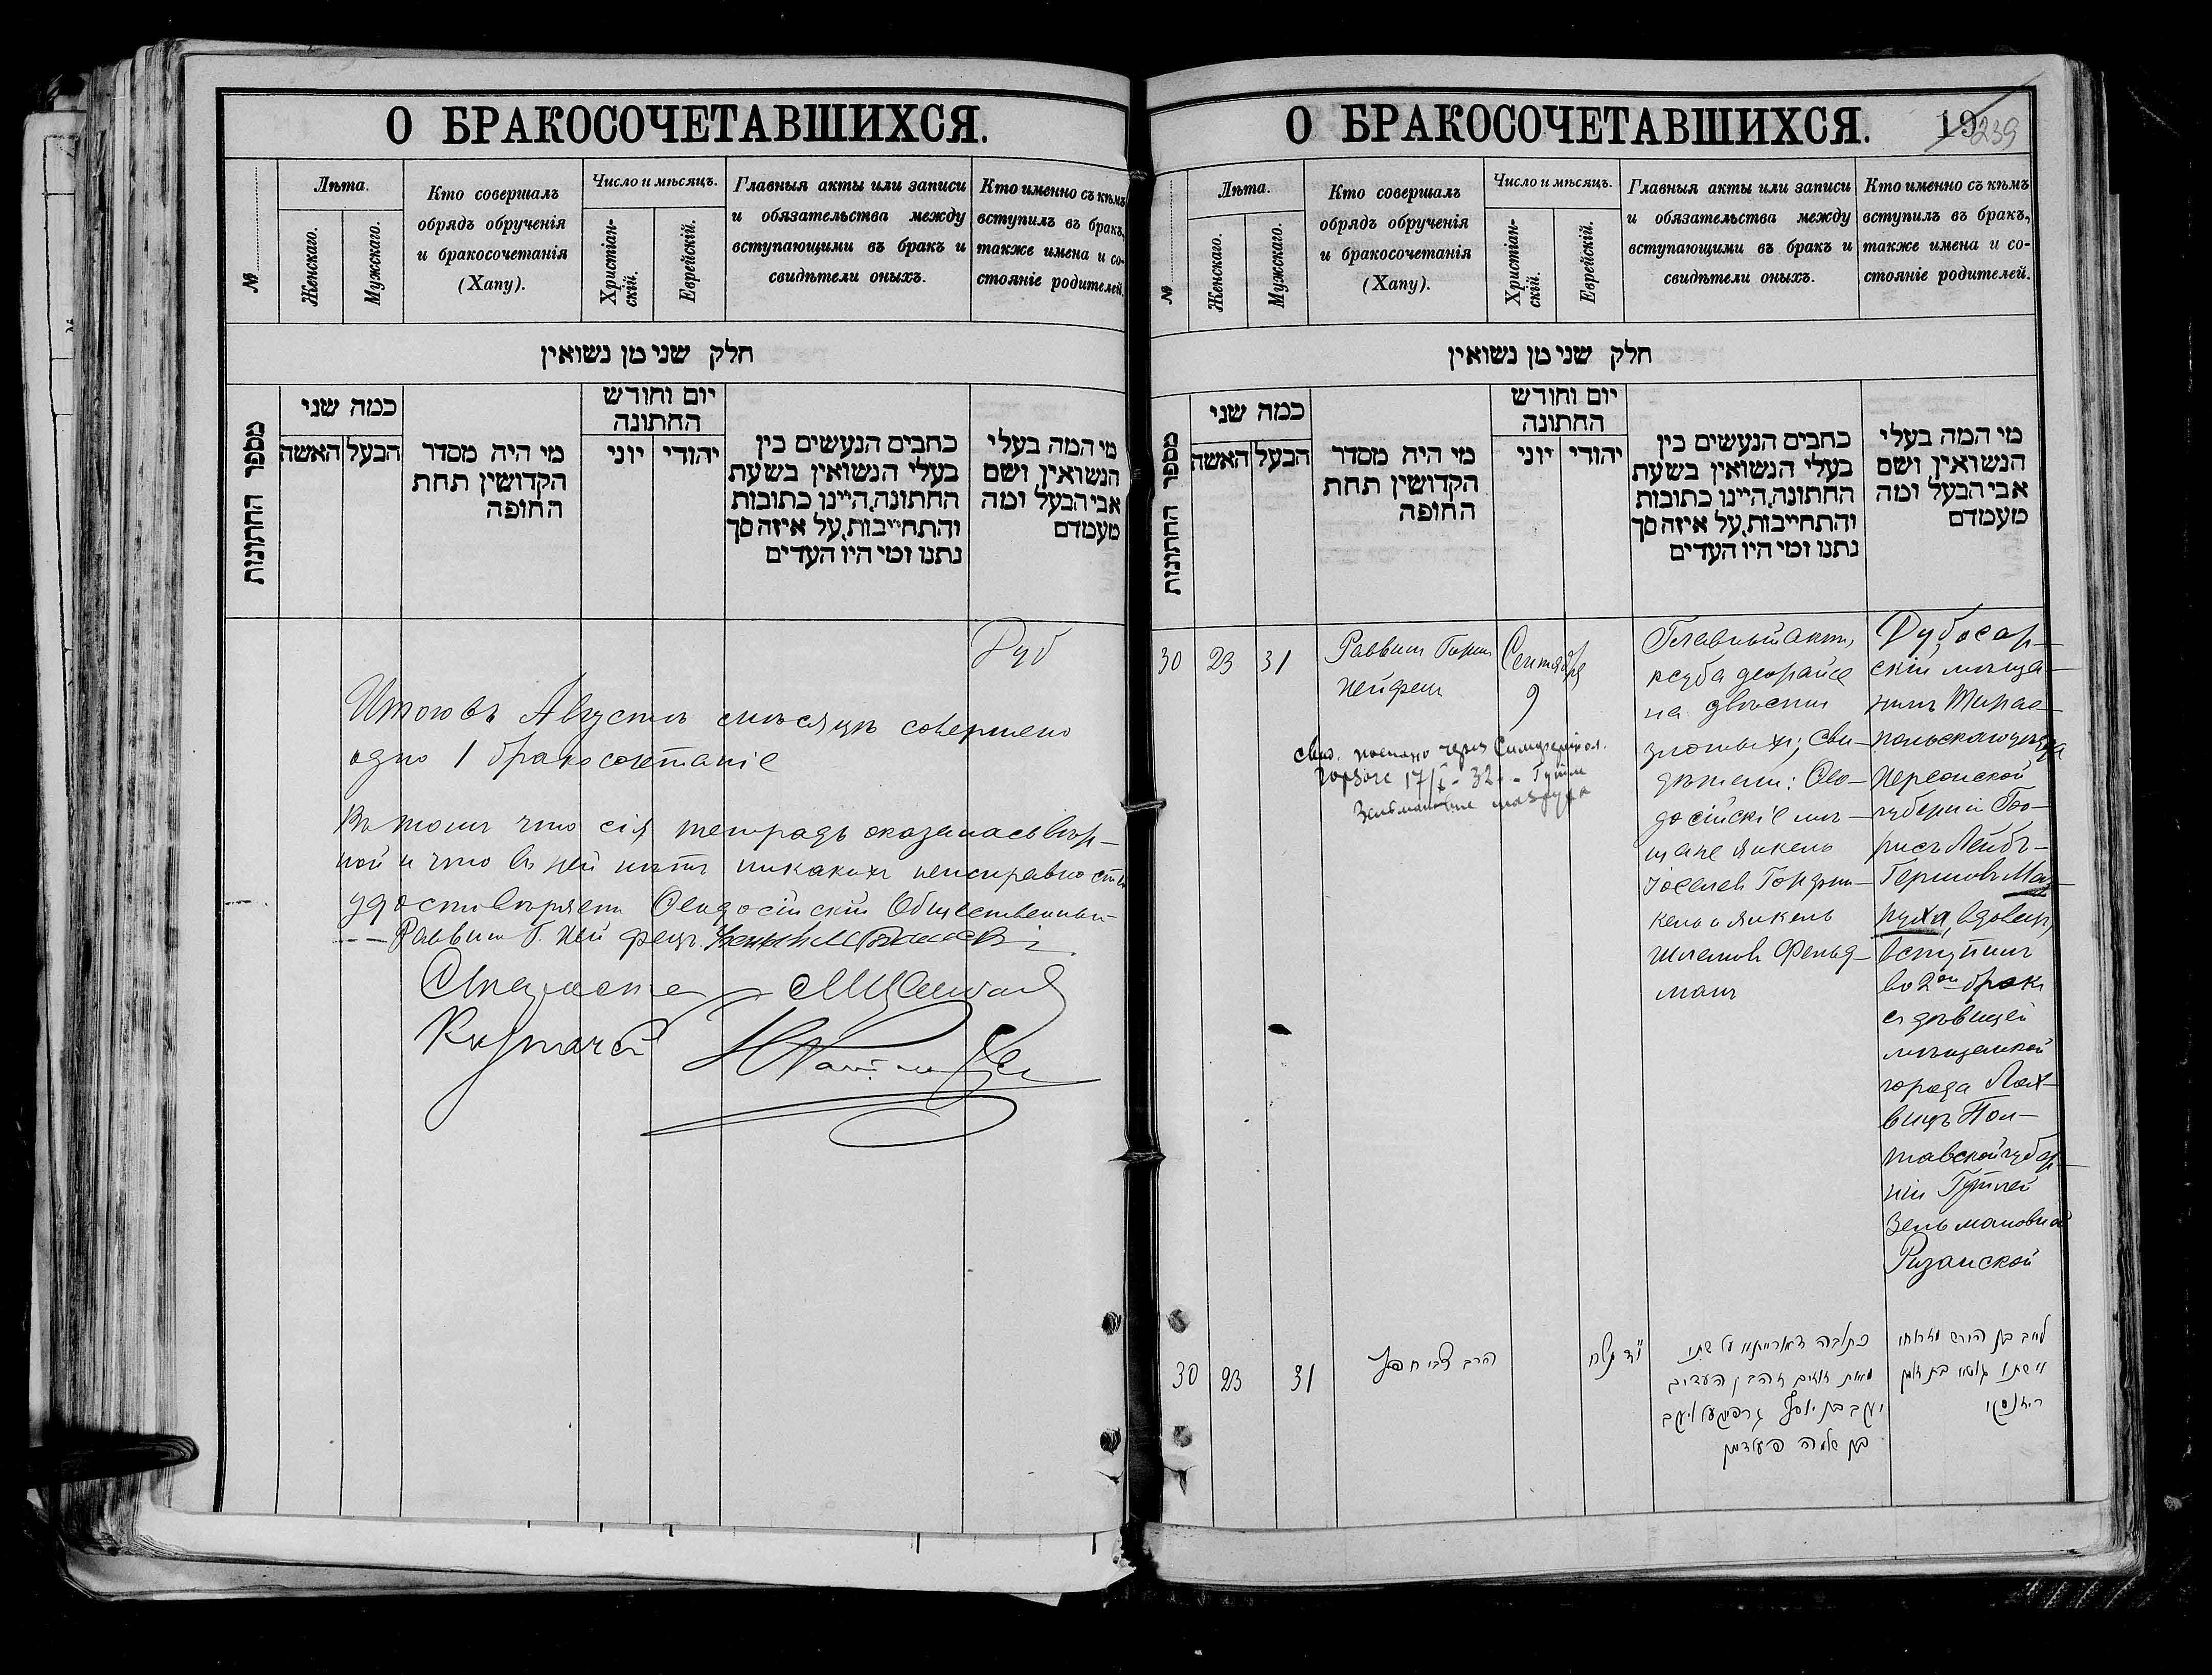 О БРАКОСОЧЕТАВШИХСЯ.
№
Лѣта.
Женскаго.
Мужскаго.
Кто совершалъ
обрядъ обрученія
и бракосочетанія
(Хапу).
Число и мѣсяцъ.
Христіан-
скій.
Еврейскій.
Главныя акты или записи
и обязательства между
вступающими въ бракъ и
свидѣтели оныхъ.
Кто именно съ кѣмъ
вступилъ въ бракъ,
также имена и со-
стояніе родителей.
חלק שני מן נשואין
מספר החתונות
כמה שני
הבעל
האשה
מי היה מסדר
הקדושין תחת
החופה
יום וחודש
החתונה
יהודי
יוני
כתבים הנעשים בין
בעלי הנשואין בשעת
החתונה, היינו כתובות
והתחייבות, על איזה סך
נתנו ומי היו העדים
מי המה בעלי
הנשואין ושם
אבי הבעל ומה
מעמדם
Дуб
Итого въ Августѣ мѣсяцѣ совершено
одно 1 бракосочетаніе
Въ томъ что сія тетрадь оказалась вѣр-
ной и что въ ней нѣтъ никакихъ неисправностей
удостовѣряетъ Ѳеодосійскій Общественный
Раввинъ Г. Нейфецъ.
Староста
Казначей
О БРАКОСОЧЕТАВШИХСЯ.
19
239
№
Лѣта.
Женскаго.
Мужскаго.
Кто совершалъ
обрядъ обрученія
и бракосочетанія
(Хапу).
Число и мѣсяцъ.
Христіан-
скій.
Еврейскій.
Главныя акты или записи
и обязательства между
вступающими въ бракъ и
свидѣтели оныхъ.
Кто именно съ кѣмъ
вступилъ въ бракъ,
также имена и со-
стояніе родителей.
חלק שני מן נשואין
מספר החתונות
כמה שני
הבעל
האשה
מי היה מסדר
הקדושין תחת
החופה
יום וחודש
החתונה
יהודי
יוני
כתבים הנעשים בין
בעלי הנשואין בשעת
החתונה, היינו כתובות
והתחייבות, על איזה סך
נתנו ומי היו העדים
מי המה בעלי
הנשואין ושם
אבי הבעל ומה
מעמדם
30
23
31
Раввинъ Гирш
Нейфецъ
Сентября
9
свид. послано через Симферопол.
горзагс 17/I - 32 - Гутле
Зельмановне Мазруха
Главный актъ
ксуба деорайсе
на двѣсти
злотыхъ; Сви-
дѣтели: Ѳео-
досійскіе мѣ-
щане Янкель
Іоселев
кель и Янкель
Шлемов Фельд-
манъ
Дубосар-
скій мѣща-
нинъ Тирас-
польскаго уѣзда
Херсонской
губерніи Бо-
рисъ Лейбъ-
Гершовъ Маз-
руха, вдовецъ,
вступилъ
во 2ой бракъ
съ дѣвицей
мѣщанкой
города Лох-
вицъ Пол-
тавской губер-
ніи Гутлей
Зельмановной
Ризанской
30
23
31
הרב צבי חפץ
כתובה דארייתא על שתי
מאות זהב והעדים
יעקב בן יוסף
בן שלמה פעלדמן
לייב בן הירש מזרוחו